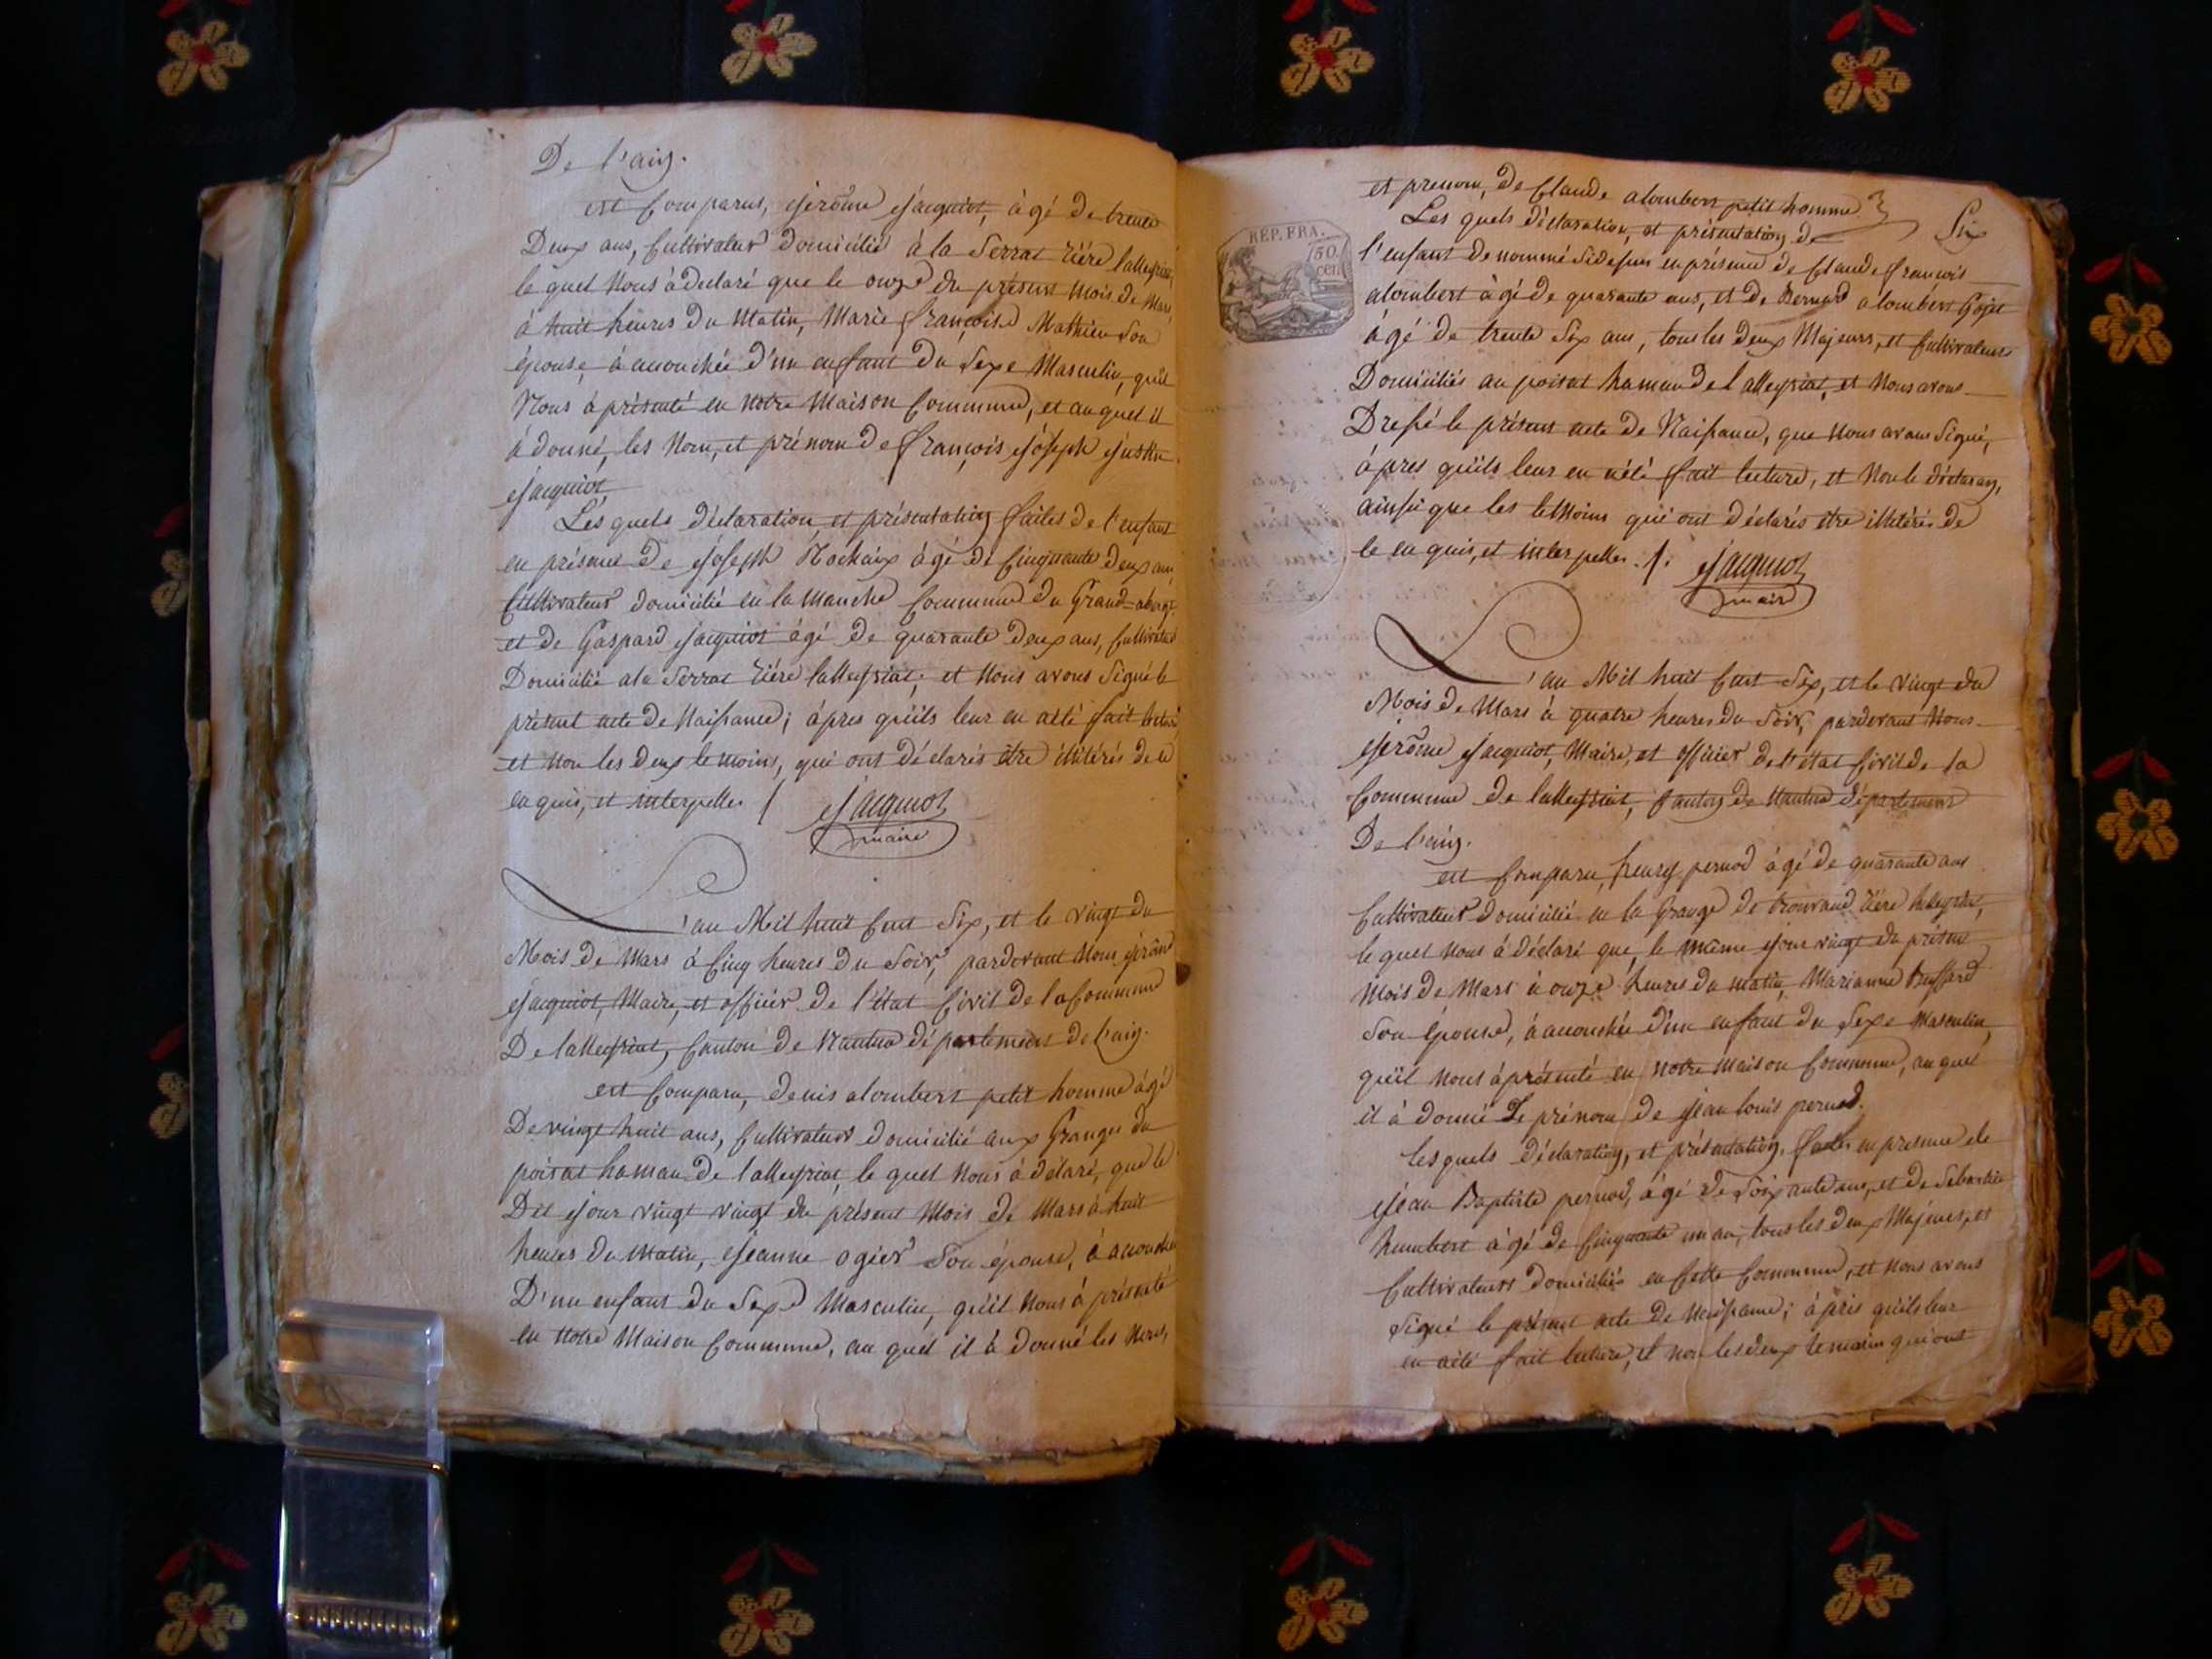 De l'ain.
est Comparus, jerôme jacquiot, àgé de trente
Deux ans, Cultivateur domicilié à la Serrat rière lalleyriat,
le quel Nous à declaré que le onze du présent mois de Mars,
à huit heures du Matin, Marie françoise Mathieu Son
épouse, à accouchée d'un enfant du Sexe Masculin, qu'il
Nous à présenté en Notre Maison Commune, et au quel il
à donné, les Nom, et prénom de françois joseph justin
jacquiot
Les quels déclaration, et présentation faites de l'enfant
en présence de joseph àgé de Cinquante deux ans
Cultivateur domicilié en la Manche Commune du Grand=abergt.
et de Gaspard jacquiot àgé de quarante deux ans, Cultivateur
Domicilié a la Serrat rière lalleyriat; et Nous avons Signé le
présent acte de Naissance; àpres qu'ils leur en aété fait lecture
et Non les deux temoins, qui ont déclarés être illitérés de le
enquis, et interpelles /. jacquiot
maire
L'an Mil huit Cent Six, et le vingt du
Mois de Mars à Cinq heures du Soir, pardevant Nous jérôme
jacquiot, Maire, et officier de l'état Civil de la Commune
De lalleyriat, Canton de Nantua département de l'ain.
est Comparu, denis alombert petit homme àgé
De vingt huit ans, Cultivateur domicilié aux Granges du
poisat hamau de lalleyriat, le quel Nous à déclaré, que le
Dit jour vingt vingt du présent Mois de Mars à huit
heures du Matin, jeanne ogier Son épouse, à accouchée
D'un enfant du Sexe Masculin, qu'il Nous à présenté
en Notre Maison Commune, au quel il à donné les Nom,
et prenom, de Claude alombert petit homme.
Six
Les quels déclaration, et présentation de
REP. FRA.
50.
cen.
l'enfant de nommé en présence de Claude françois
alombert àgé de quarante ans, et de Bernard alombert Goget
àgé de trente Six ans, tous les deux Majeurs, et Cultivateurs
Domiciliés au poisat hamau de lalleyriat, et Nous avons
Dressé le présent acte de Naissance, que Nous avons Signé,
àpres qu'ils leur en aété fait lecture, et Non le déclarant,
ainsi que les temoins qui ont déclarés être illitérés de
le enquis, et interpelles ./. jacquiot
maire
L'an Mil huit Cent Six, et le vingt du
Mois de Mars à quatre heures du Soir, pardevant Nous
jerôme jacquiot, Maire, et officier de l'état Civil de la
Commune de lalleyriat, Canton de Nantua département
De l'ain.
est Comparu, henry pernod àgé de quarante ans
Cultivateur domicilié en la Grange de rière lalleyriat,
le quel Nous à déclaré que, le même jour vingt du présent
Mois de Mars à onze heures du matin, Marianne
Son épouse, à accouchée d'un enfant du Sexe Masculin,
qu'il Nous à présenté en Notre Maison Commune, au quel
il à donné le prénom de jean louis pernod.
Les quels déclaration, et présentation, faite en presence de
jean Baptiste pernod, àgé de Soixante ans, et de Sebastien
humbert àgé de Cinquante un an, tous les deux Majeurs, et
Cultivateurs domiciliés en Cette Commune, et Nous avons
Signé le présent acte de Naissance; àprès qu'ils leur
en aété fait lecture, et non les deux temoins qui ont